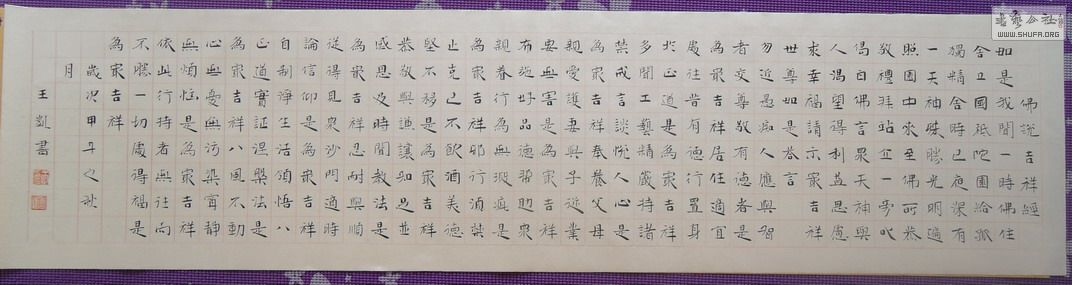 書藝公社
WWW.SHUFA.ORG
佛說吉祥經
如是我聞一時佛住
舍卫國祇陀園給孤
獨精舍時已夜深有
一天神殊勝光明遍
照園中來至佛所恭
敬禮拜站立一旁以
偈白佛言眾天神與
人渴望得利益思慮
求幸福請示最吉祥
世尊如是答言
勿近愚痴人應與智
者交尊敬有德者是
為最吉祥居住適宜
處往昔有德行置身
於正道是為最吉祥
多聞工藝精嚴持諸
禁戒言談悅人心是
為最吉祥奉養父母
親愛護妻與子從業
要無害是為最吉祥
布施好品德幫助眾
親眷行為無瑕疵是
為最吉祥邪行須禁
止克己不飲酒美德
堅不移是為最吉祥
恭敬與謙讓知足並
感恩及時聞教法是
為最吉祥忍耐與順
從得見眾沙門適時
論信仰是為最吉祥
自制淨生活領悟八
正道實証涅槃法是
為最吉祥八風不動
心無憂無污染寧靜
無煩惱是為最吉祥
依此行持者無往而
不勝一切處得福是
為最吉祥
歲次甲午之秋
月
王凱書